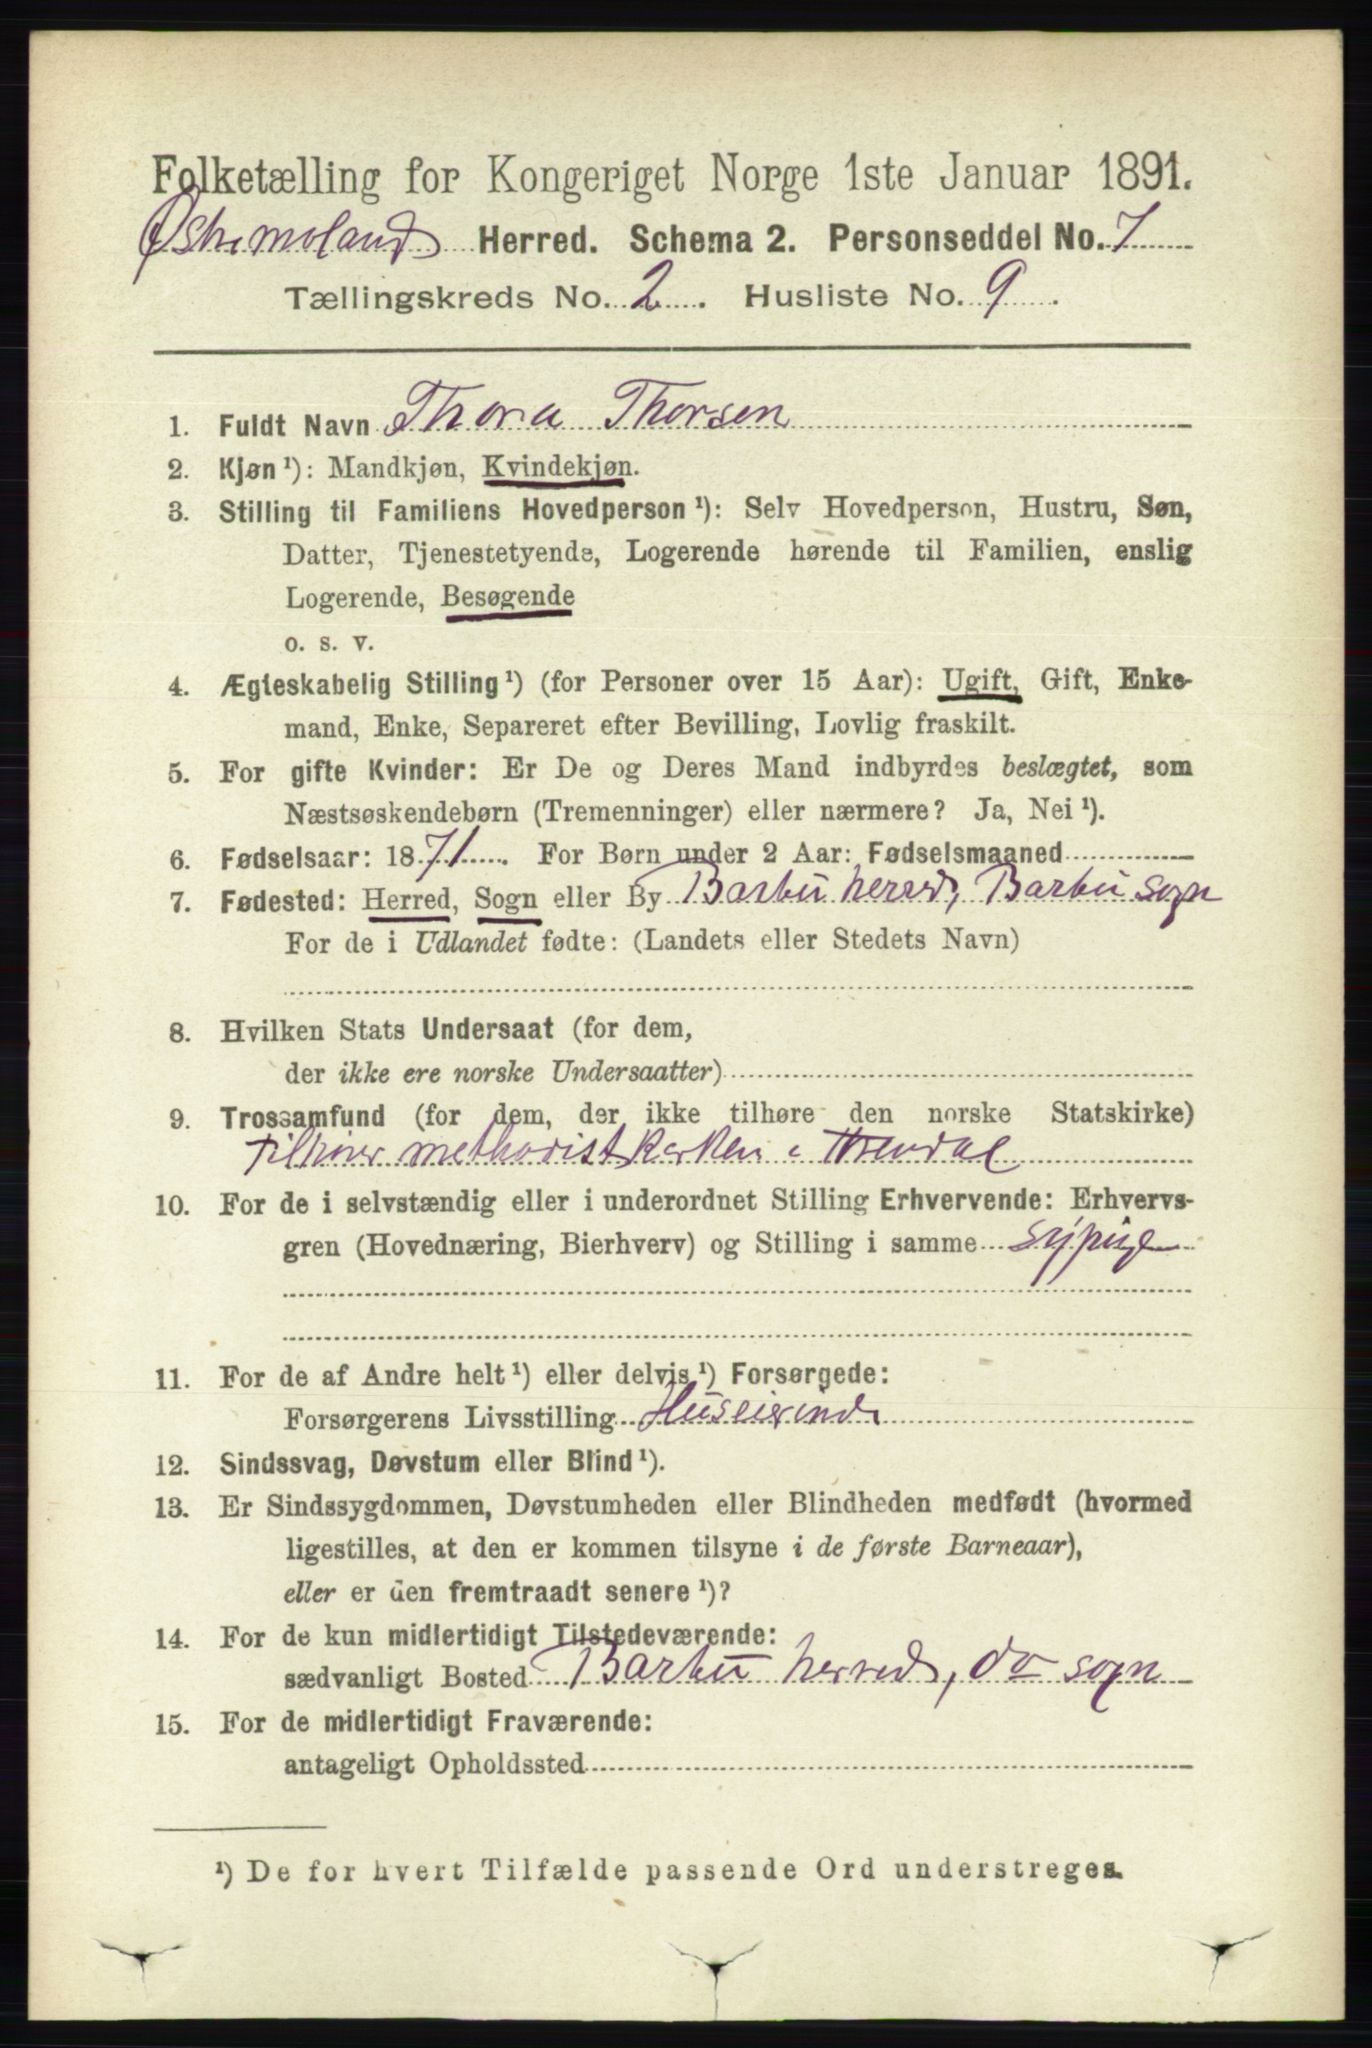 Folketælling for Kongeriget Norge 1ste Januar 1891.
Østremoland Herred. Schema 2. Personseddel No. 7
Tællingskreds No. 2. Husliste No. 9.
1. Fuldt Navn Thora Thorsen
2. Kjøn ¹): Mandkjøn, Kvindekjøn.
3. Stilling til Familiens Hovedperson ¹): Selv Hovedperson, Hustru, Søn,
Datter, Tjenestetyende, Logerende hørende til Familien, enslig
Logerende, Besøgende
o. s. v.
4. Ægteskabelig Stilling ¹) (for Personer over 15 Aar): Ugift, Gift, Enke-
mand, Enke, Separeret efter Bevilling, Lovlig fraskilt.
5. For gifte Kvinder: Er De og Deres Mand indbyrdes beslægtet, som
Næstsøskendebørn (Tremenninger) eller nærmere? Ja, Nei ¹).
6. Fødselsaar: 1871. For Børn under 2 Aar: Fødselsmaaned
7. Fødested: Herred, Sogn eller By Barbu herred, Barbu sogn
For de i Udlandet fødte: (Landets eller Stedets Navn)
8. Hvilken Stats Undersaat (for dem,
der ikke ere norske Undersaatter)
9. Trossamfund (for dem, der ikke tilhøre den norske Statskirke)
tilhører methodistkirken i Arendal
10. For de i selvstændig eller i underordnet Stilling Erhvervende: Erhvervs-
gren (Hovednæring, Bierhverv) og Stilling i samme sypige
11. For de af Andre helt ¹) eller delvis ¹) Forsørgede:
Forsørgerens Livsstilling Huseierinde
12. Sindssvag, Døvstum eller Blind ¹).
13. Er Sindssygdommen, Døvstumheden eller Blindheden medfødt (hvormed
ligestilles, at den er kommen tilsyne i de første Barneaar),
eller er den fremtraadt senere ¹)?
14. For de kun midlertidigt Tilstedeværende:
sædvanligt Bosted Barbu herred, do sogn
15. For de midlertidigt Fraværende:
antageligt Opholdssted
¹) De for hvert Tilfælde passende Ord understreges.